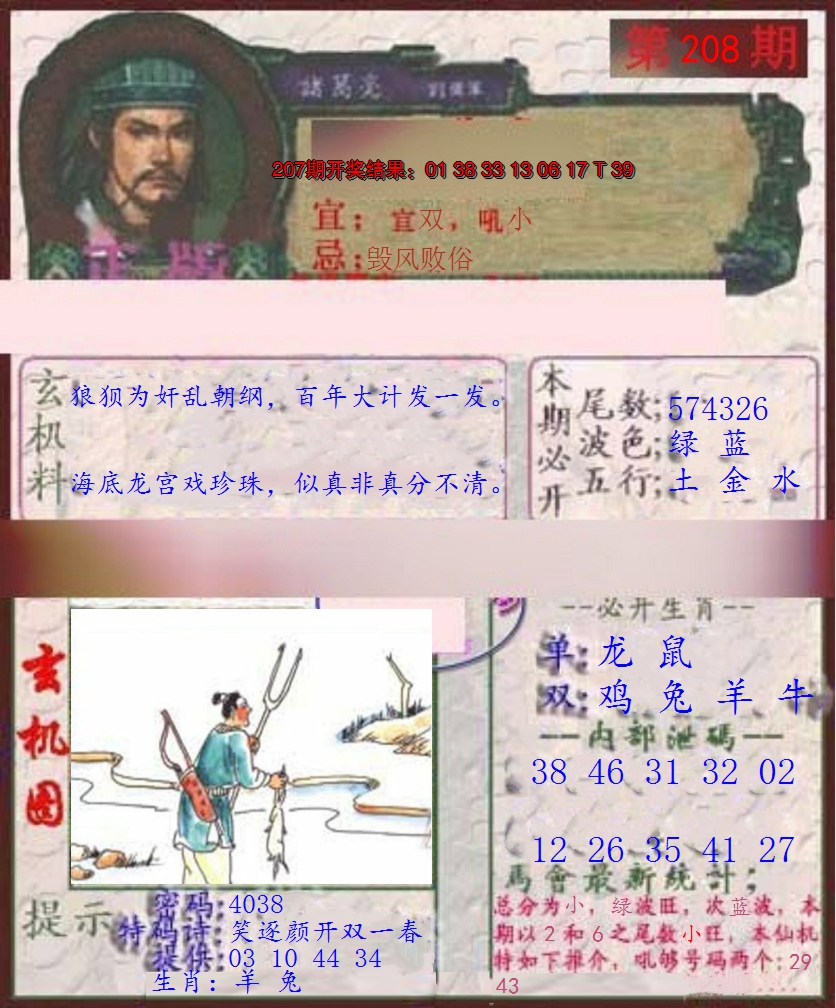 第 208 期
諸葛亮
207期开奖结果：01 38 33 13 06 17 T 39
宜；宜双，吼小
忌；毁风败俗
正版
玄机料
狼狈为奸乱朝纲，百年大计发一发。
海底龙宫戏珍珠，似真非真分不清。
本期必开
尾数；574326
波色；绿 蓝
五行；土 金 水
玄机图
--必开生肖--
单：龙 鼠
双：鸡 兔 羊 牛
--内部泄碼--
38 46 31 32 02
12 26 35 41 27
馬會最新統計；
总分为小，绿波旺，次蓝波，本
期以2和6之尾数小旺，本仙机
特如下推介，吼够号码两个：29
43
提示
密码：4038
特码诗：笑逐颜开双一春
提供：03 10 44 34
生肖：羊 兔